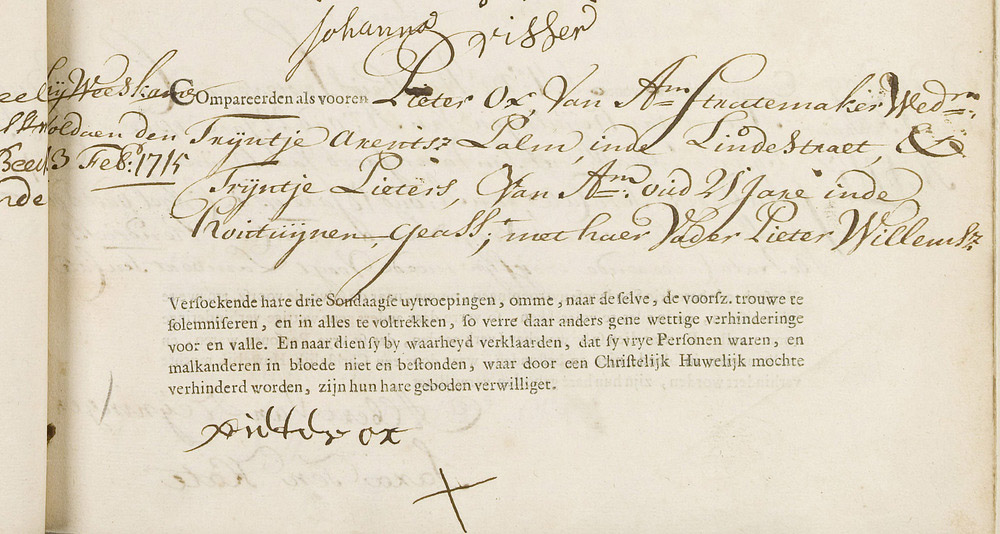 Johanna Visser
hij Weeskamer
voldaen den
3 Feb: 1715
COmpareerden als vooren Pieter Ox, Van Am Straetemaker Wedr.
Trijntje Arents: Palm, inde Lindestraet, &
Trijntje Pieters, Van Am: oud 21 Jare inde
Houttuijnen, geass:t met haer Vader Pieter Willemsz
Versoekende hare drie Sondaagse uytroepingen, omme, naar de selve, de voorsz. trouwe te
solemniseren, en in alles te voltrekken, so verre daar anders gene wettige verhinderinge
voor en valle. En naar dien sy by waarheyd verklaarden, dat sy vrye Personen waren, en
malkanderen in bloede niet en bestonden, waar door een Christelijk Huwelijk mochte
verhinderd worden, zijn hun hare geboden verwilliget.
ox